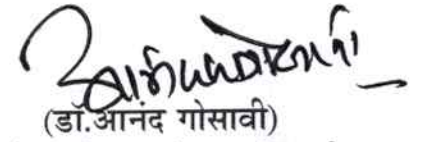 (डॉ.आनंद गोसावी)